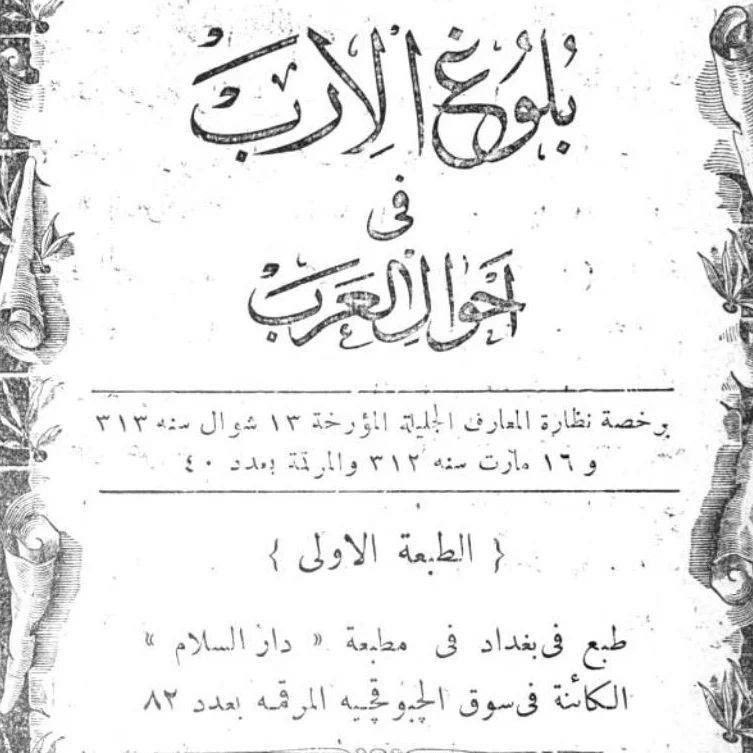 بُلُوغ الِارَبْ
فى
اَحْوَالِ العَرَبْ
برخصة نظارة المعارف الجليلة المؤرخة ١٣ شوال سنه ٣١٣
و ١٦ مارت سنه ٣١٢ والمرقمة بعدد ٤٠
﴿ الطبعة الاولى ﴾
طبع فى بغداد فى مطبعة « دار السلام »
الكائنة فى سوق الچبوقچيه المرقمه بعدد ٨٢